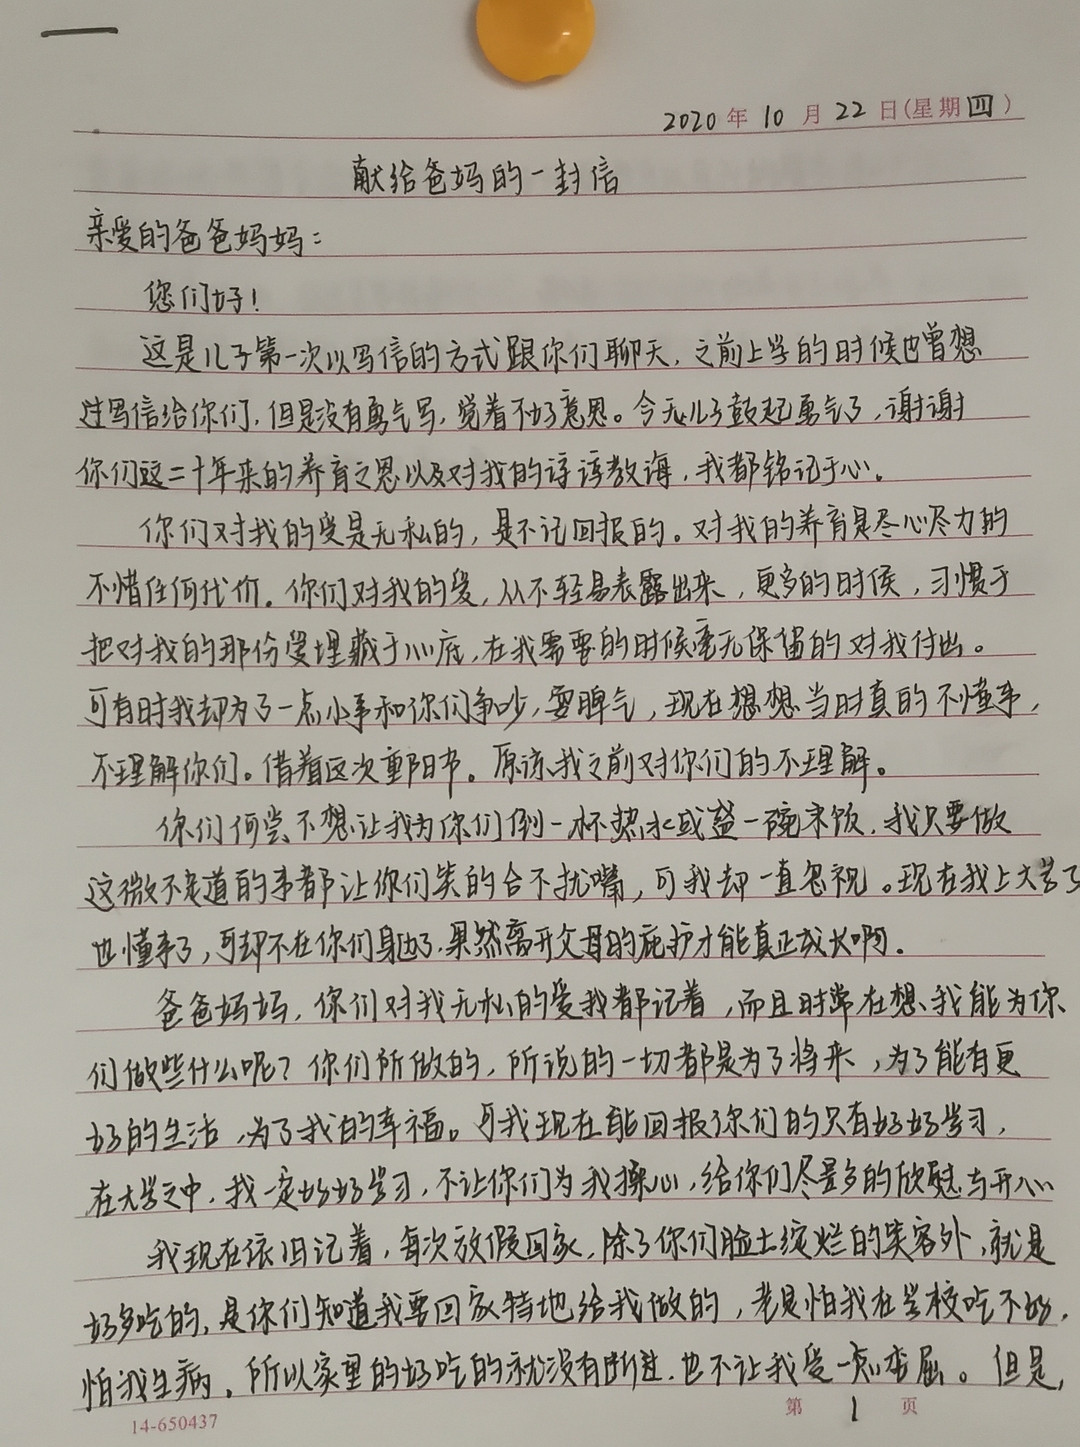 2020年10月22日(星期四)
献给爸妈的一封信
亲爱的爸爸妈妈:
您们好!
这是儿子第一次以写信的方式跟你们聊天,之前上学的时候也曾想
过写信给你们,但是没有勇气写,觉着不好意思。今天儿子鼓起勇气了,谢谢
你们这二十年来的养育之恩以及对我的谆谆教诲,我都铭记于心。
你们对我的爱是无私的,是不记回报的。对我的养育是尽心尽力的
不惜任何代价。你们对我的爱,从不轻易表露出来,更多的时候,习惯于
把对我的那份爱埋藏于心底,在我需要的时候毫无保留的对我付出。
可有时我却为了一点小事和你们争吵,耍脾气,现在想想当时真的不懂事,
不理解你们。借着这次重阳节。原谅我之前对你们的不理解。
你们何尝不想让我为你们倒一杯热水或盛一碗米饭,我只要做
这微不足道的事都让你们笑的合不拢嘴,可我却一直忽视。现在我上大学了
也懂事了,可却不在你们身边了.果然离开父母的庇护才能真正成长啊.
爸爸妈妈,你们对我无私的爱我都记着,而且时常在想、我能为你
们做些什么呢?你们所做的,所说的一切都是为了将来,为了能有更
好的生活,为了我的幸福。可我现在能回报你们的只有好好学习,
在大学之中,我一定好好学习,不让你们为我操心,给你们尽量多的欣慰与开心
我现在依旧记着,每次放假回家,除了你们脸上绽烂的笑容外,就是
好多吃的,是你们知道我要回家特地给我做的,老是怕我在学校吃不好,
怕我生病,所以家里的好吃的就没有断过.也不让我受一点委屈。但是,
14-650437
第1页